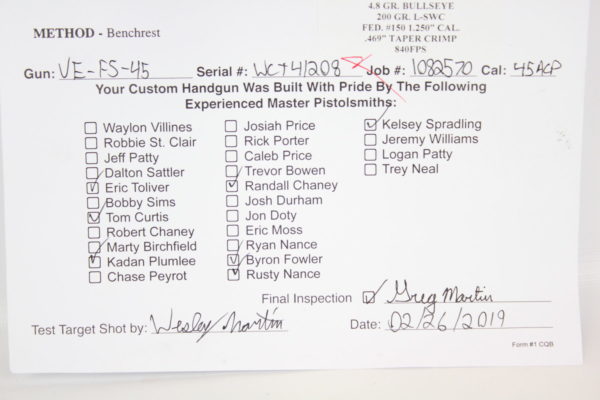 4.8 GR. BULLSEYE
200 GR. L-SWC
FED. #150 1.250" CAL.
.469" TAPER CRIMP
840FPS
METHOD - Benchrest
Gun: VE-FS-45 Serial #: WCT41208 Job #: 1082570 Cal: 45ACP
Your Custom Handgun Was Built With Pride By The Following
Experienced Master Pistolsmiths:
Waylon Villines
Robbie St. Clair
Jeff Patty
Dalton Sattler
Eric Toliver
Bobby Sims
Tom Curtis
Robert Chaney
Marty Birchfield
Kadan Plumlee
Chase Peyrot
Josiah Price
Rick Porter
Caleb Price
Trevor Bowen
Randall Chaney
Josh Durham
Jon Doty
Eric Moss
Ryan Nance
Byron Fowler
Rusty Nance
Kelsey Spradling
Jeremy Williams
Logan Patty
Trey Neal
Final Inspection Greg Martin
Test Target Shot by: Wesley Martin Date: 02/26/2019
Form #1 CQB